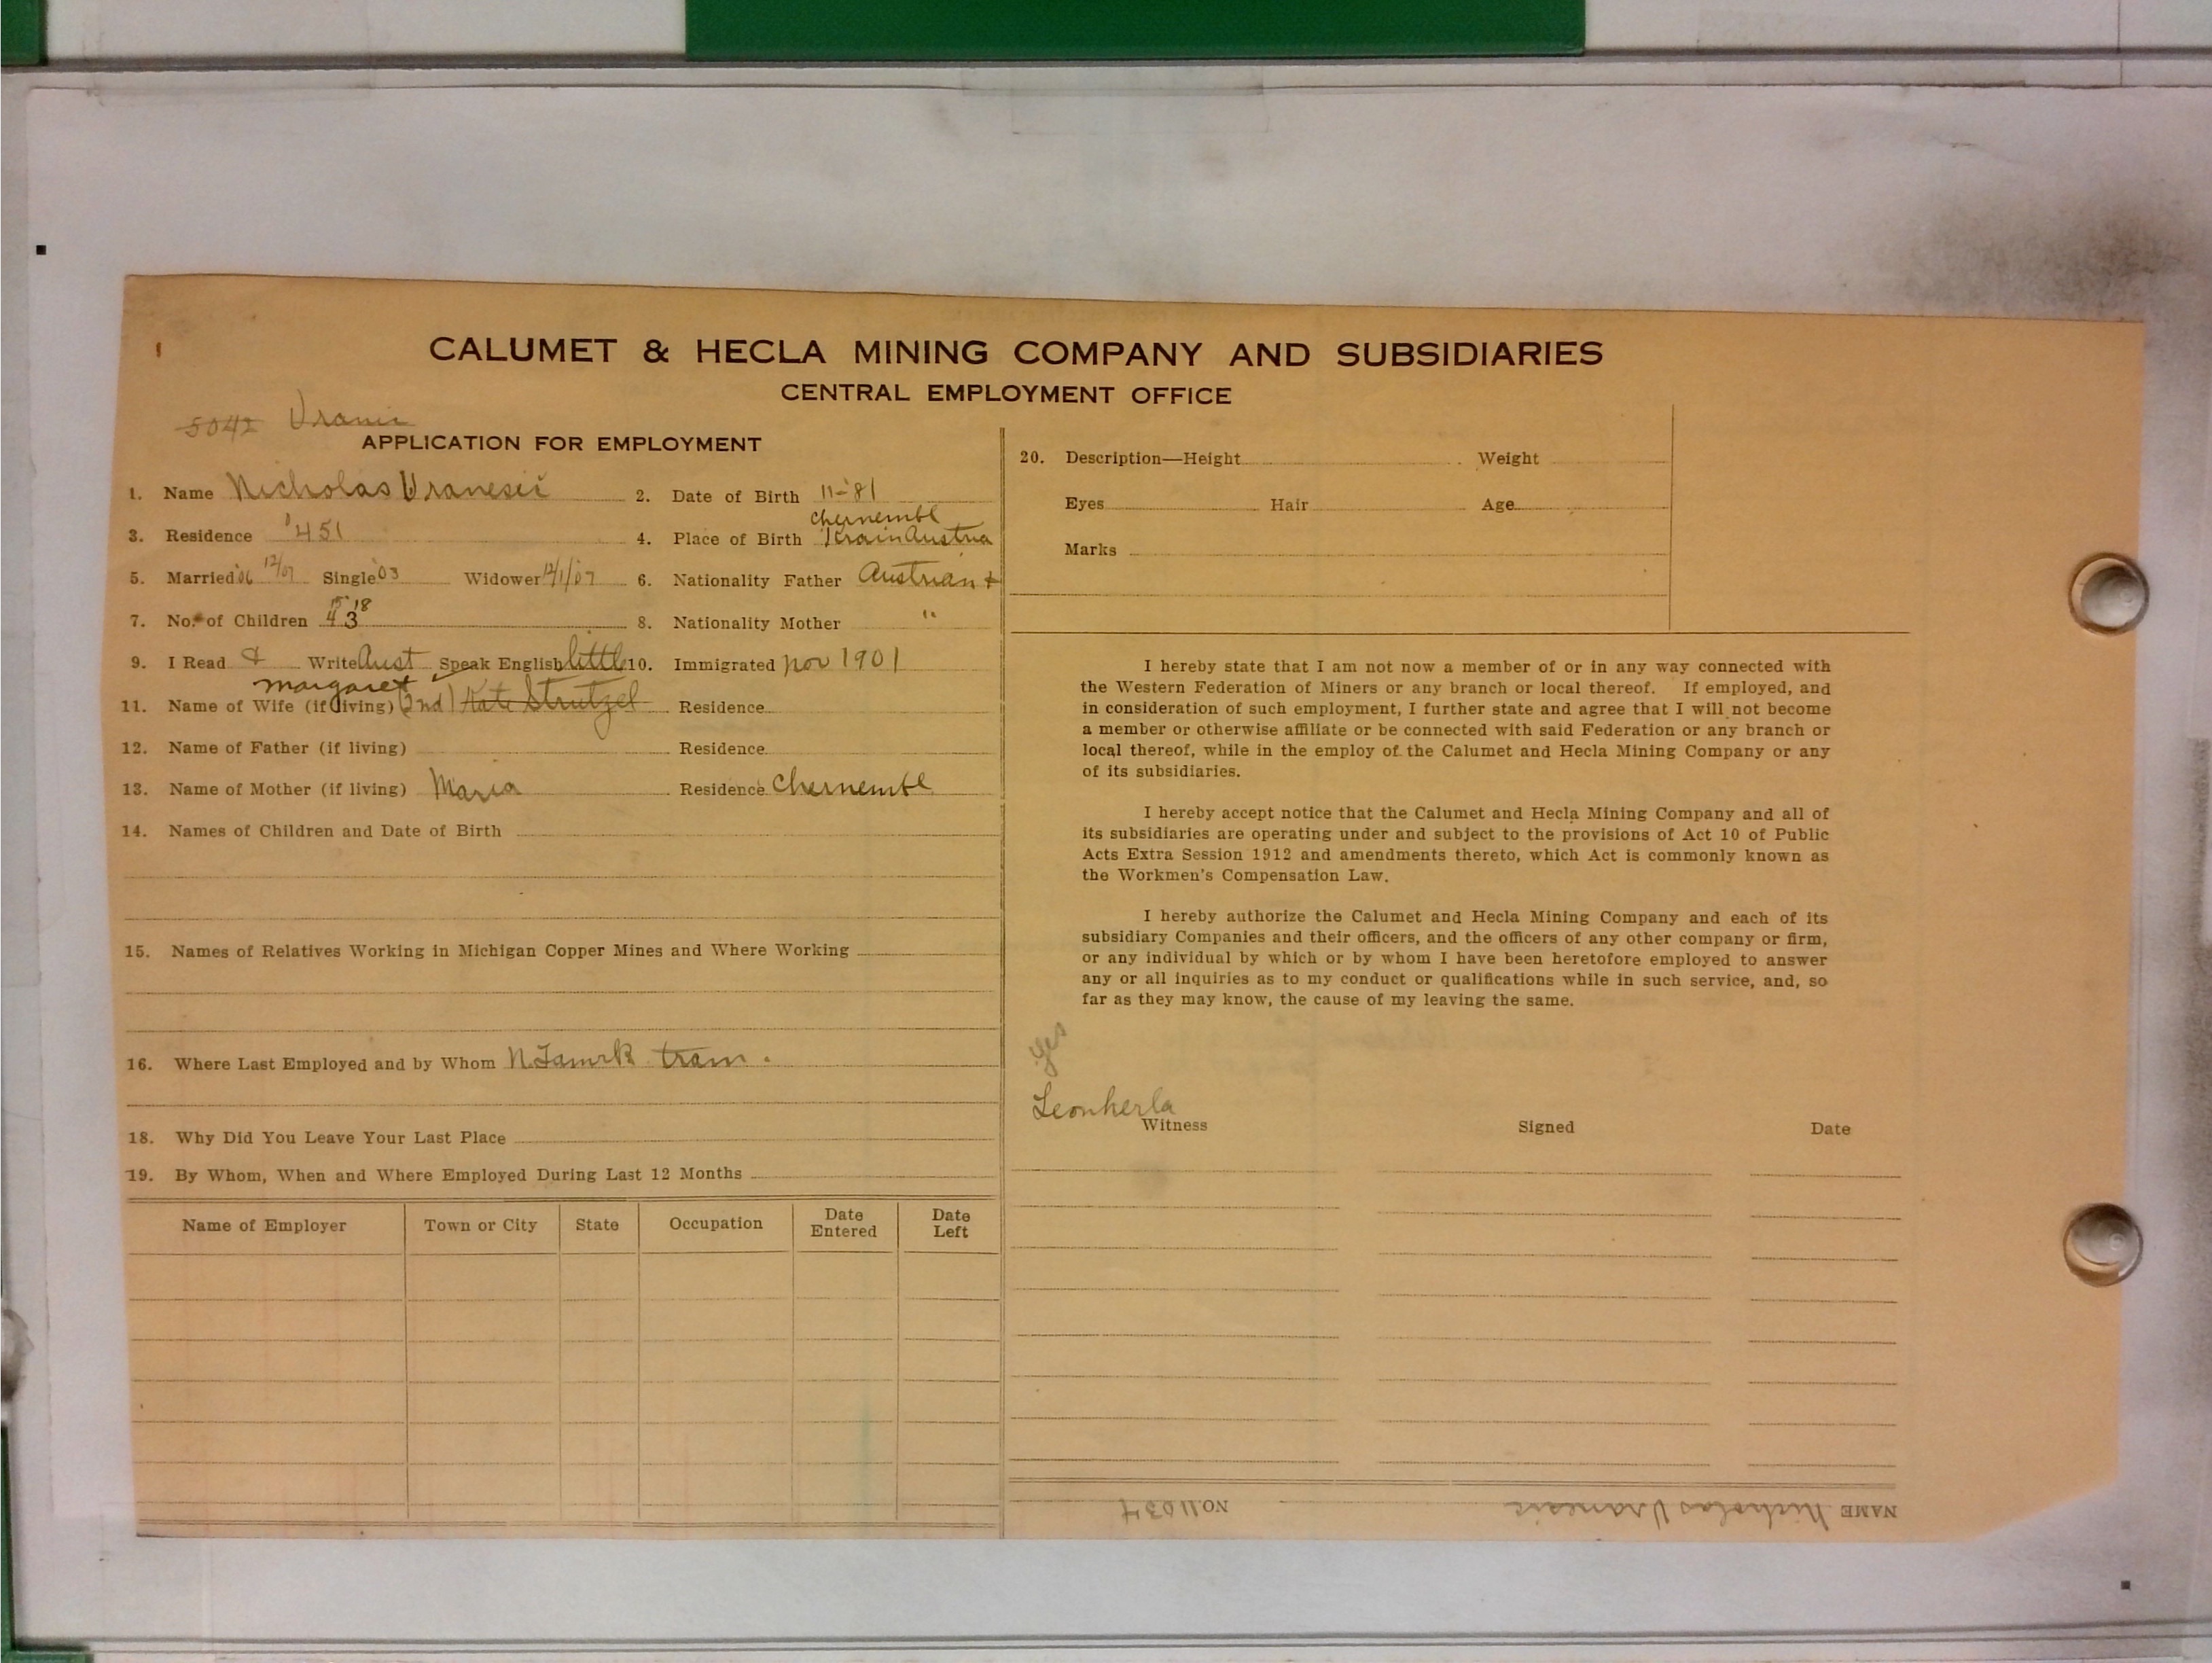 CALUMET & HECLA MINING COMPANY AND SUBSIDIARIES
CENTRAL EMPLOYMENT OFFICE
5042
APPLICATION FOR EMPLOYMENT
1. Name Nicholas Vranesic 2. Date of Birth 11-'81
3. Residence 451 4. Place of Birth Chernembl Krain Austria
5. Married '06 12/07 Single '03 Widower 12/1/07 6. Nationality Father Austrian +
7. No. of Children 4 3 '18 8. Nationality Mother "
9. I Read & Write Aust Speak English little 10. Immigrated Nov 1901
Margaret
11. Name of Wife (if living) (2nd) Kate Strutzel Residence
12. Name of Father (if living) Residence
13. Name of Mother (if living) Maria Residence Chernembl
14. Names of Children and Date of Birth
15. Names of Relatives Working in Michigan Copper Mines and Where Working
16. Where Last Employed and by Whom N. Tamrk tram.
18. Why Did You Leave Your Last Place
19. By Whom, When and Where Employed During Last 12 Months
Name of Employer Town or City State Occupation Date Entered Date Left
20. Description—Height Weight
Eyes Hair Age
Marks
I hereby state that I am not now a member of or in any way connected with
the Western Federation of Miners or any branch or local thereof. If employed, and
in consideration of such employment, I further state and agree that I will not become
a member or otherwise affiliate or be connected with said Federation or any branch or
local thereof, while in the employ of the Calumet and Hecla Mining Company or any
of its subsidiaries.
I hereby accept notice that the Calumet and Hecla Mining Company and all of
its subsidiaries are operating under and subject to the provisions of Act 10 of Public
Acts Extra Session 1912 and amendments thereto, which Act is commonly known as
the Workmen's Compensation Law.
I hereby authorize the Calumet and Hecla Mining Company and each of its
subsidiary Companies and their officers, and the officers of any other company or firm,
or any individual by which or by whom I have been heretofore employed to answer
any or all inquiries as to my conduct or qualifications while in such service, and, so
far as they may know, the cause of my leaving the same.
Yes
Witness Signed Date
NAME Nicholas Vranesic NO. 11034